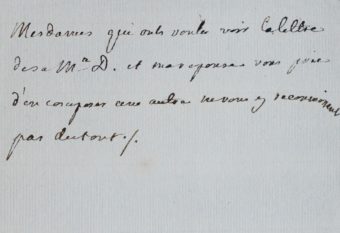 Mesdames qui ont voulu voir la lettre
de sa Mr D. et ma reponse vous prie
d'en composer une autre ne vous y reconnoissent
pas du tout /.